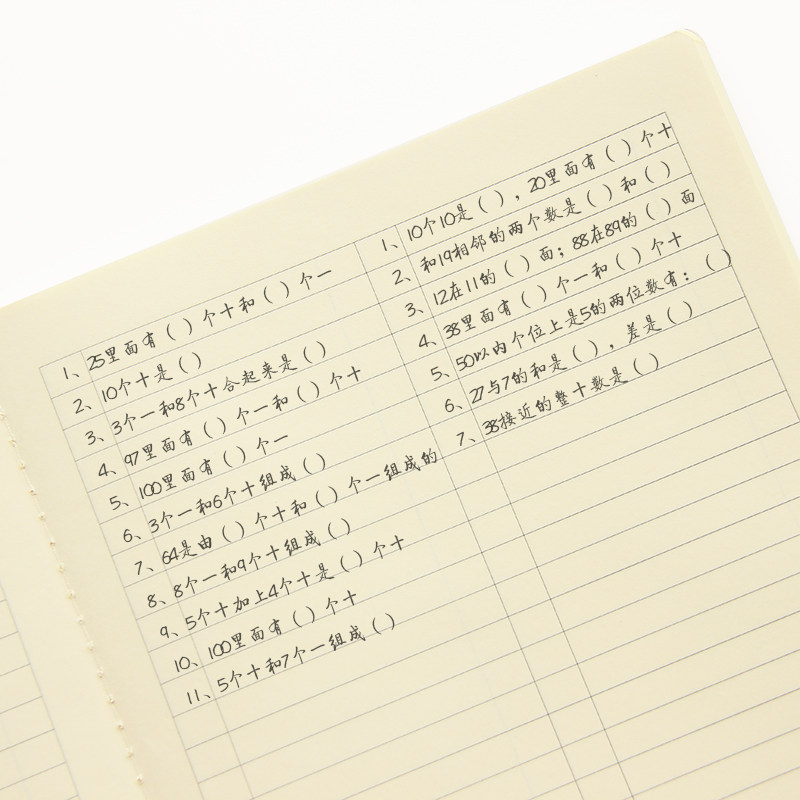 1、25里面有（ ）个十和（ ）个一
2、10个十是（ ）
3、3个一和8个十合起来是（ ）
4、97里面有（ ）个一和（ ）个十
5、100里面有（ ）个一
6、3个一和6个十组成（ ）
7、64是由（ ）个十和（ ）个一组成的
8、8个一和9个十组成（ ）
9、5个十加上4个十是（ ）个十
10、100里面有（ ）个十
11、5个十和7个一组成（ ）
1、10个10是（ ），20里面有（ ）个十
2、和19相邻的两个数是（ ）和（ ）
3、12在11的（ ）面；88在89的（ ）面
4、38里面有（ ）个一和（ ）个十
5、50以内个位上是5的两位数有：（ ）
6、27与7的和是（ ），差是（ ）
7、38接近的整十数是（ ）